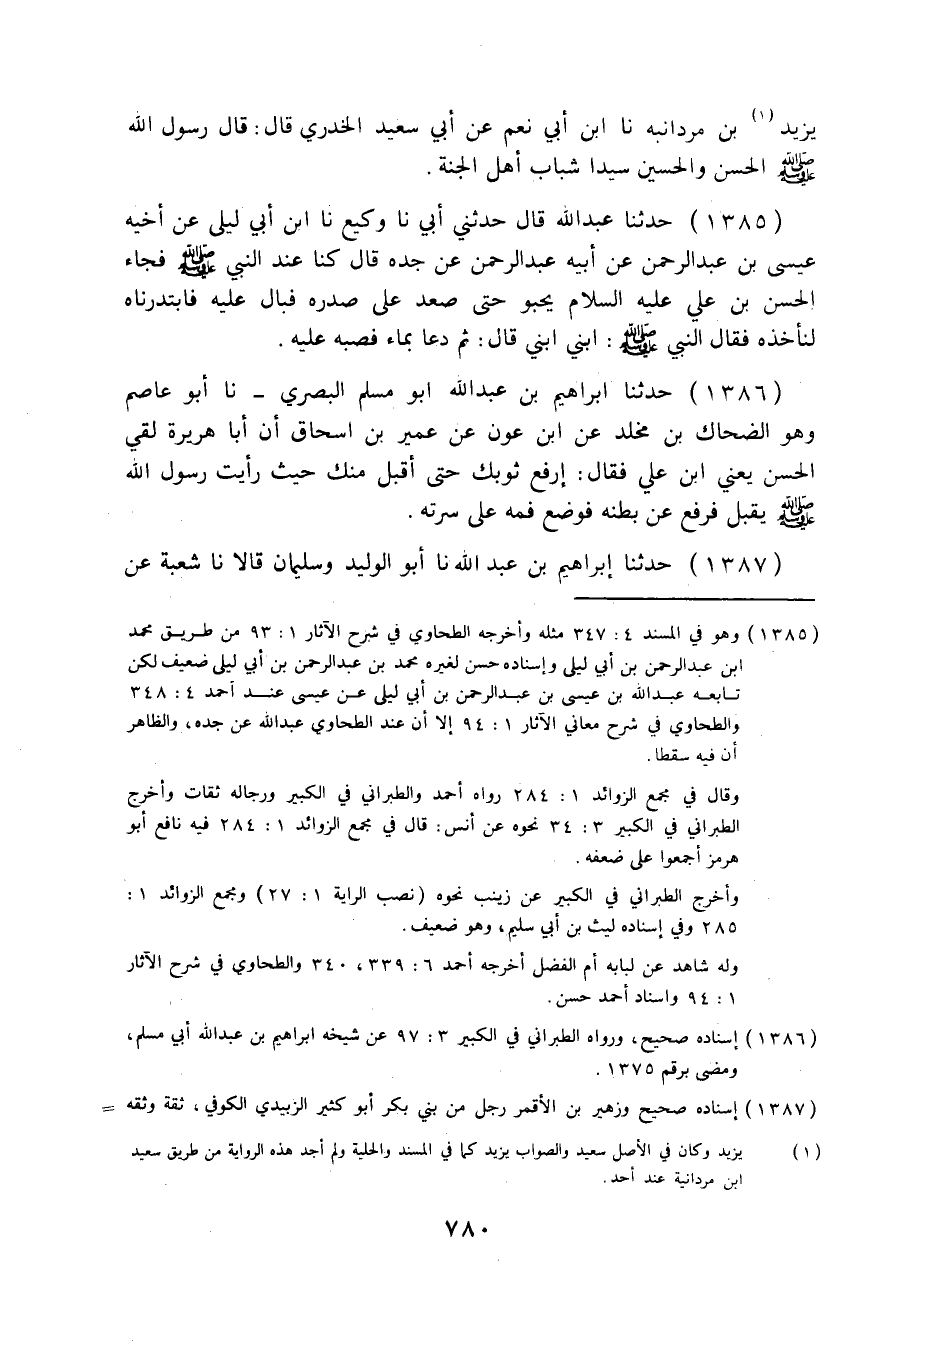 يزيد (١) بن مردانبه نا ابن أبي نعم عن أبي سعيد الخدري قال: قال رسول الله
ﷺ الحسن والحسين سيدا شباب أهل الجنة .
(١٣٨٥) حدثنا عبدالله قال حدثني أبي نا وكيع نا ابن أبي ليلى عن أخيه
عيسى بن عبدالرحمن عن أبيه عبدالرحمن عن جده قال كنا عند النبي ﷺ فجاء
الحسن بن علي عليه السلام يحبو حتى صعد على صدره فبال عليه فابتدرناه
لنأخذه فقال النبي ﷺ : ابني ابني قال: ثم دعا بماء فصبه عليه .
(١٣٨٦) حدثنا ابراهيم بن عبدالله ابو مسلم البصري - نا أبو عاصم
وهو الضحاك بن مخلد عن ابن عون عن عمير بن اسحاق أن أبا هريرة لقي
الحسن يعني ابن علي فقال: إرفع ثوبك حتى أقبل منك حيث رأيت رسول الله
ﷺ يقبل فرفع عن بطنه فوضع فمه على سرته .
(١٣٨٧) حدثنا إبراهيم بن عبد الله نا أبو الوليد وسليمان قالا نا شعبة عن
(١٣٨٥) وهو في المسند ٤ : ٣٤٧ مثله وأخرجه الطحاوي في شرح الآثار ١ : ٩٣ من طريق محمد
ابن عبدالرحمن بن أبي ليلى وإسناده حسن لغيره محمد بن عبدالرحمن بن أبي ليلى ضعيف لكن
تابعه عبدالله بن عيسى بن عبدالرحمن بن أبي ليلى عن عيسى عند أحمد ٤ : ٣٤٨
والطحاوي في شرح معاني الآثار ١ : ٩٤ إلا أن عند الطحاوي عبدالله عن جده، والظاهر
أن فيه سقطا.
وقال في مجمع الزوائد ١ : ٢٨٤ رواه أحمد والطبراني في الكبير ورجاله ثقات وأخرج
الطبراني في الكبير ٣ : ٣٤ نحوه عن أنس: قال في مجمع الزوائد ١ : ٢٨٤ فيه نافع أبو
هرمز أجمعوا على ضعفه .
وأخرج الطبراني في الكبير عن زينب نحوه (نصب الراية ١ : ٢٧) ومجمع الزوائد ١ :
٢٨٥ وفي إسناده ليث بن أبي سليم، وهو ضعيف.
وله شاهد عن لبابه أم الفضل أخرجه أحمد ٦ : ٣٣٩، ٣٤٠ والطحاوي في شرح الآثار
١ : ٩٤ واسناد أحمد حسن.
(١٣٨٦) إسناده صحيح، ورواه الطبراني في الكبير ٣ : ٩٧ عن شيخه ابراهيم بن عبدالله أبي مسلم،
ومضى برقم ١٣٧٥ .
(١٣٨٧) إسناده صحيح وزهير بن الأقمر رجل من بني بكر أبو كثير الزبيدي الكوفي، ثقة وثقه =
(١) يزيد وكان في الأصل سعيد والصواب يزيد كما في المسند والحلية ولم أجد هذه الرواية من طريق سعيد
ابن مردانية عند أحد.
٧٨٠